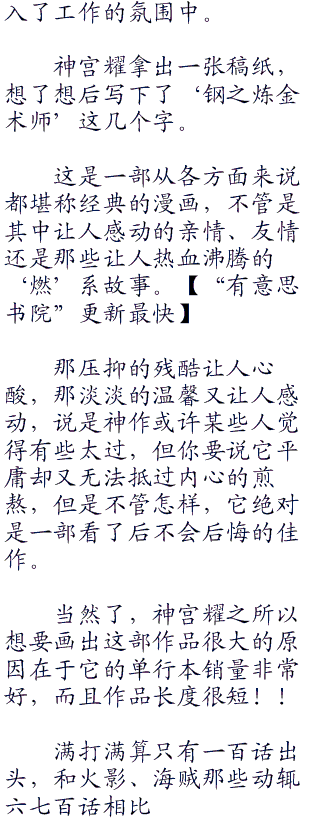 入了工作的氛围中。
神宫耀拿出一张稿纸，
想了想后写下了‘钢之炼金
术师’这几个字。
这是一部从各方面来说
都堪称经典的漫画，不管是
其中让人感动的亲情、友情
还是那些让人热血沸腾的
‘燃’系故事。【“有意思
书院”更新最快】
那压抑的残酷让人心
酸，那淡淡的温馨又让人感
动，说是神作或许某些人觉
得有些太过，但你要说它平
庸却又无法抵过内心的煎
熬，但是不管怎样，它绝对
是一部看了后不会后悔的佳
作。
当然了，神宫耀之所以
想要画出这部作品很大的原
因在于它的单行本销量非常
好，而且作品长度很短！！
满打满算只有一百话出
头，和火影、海贼那些动辄
六七百话相比